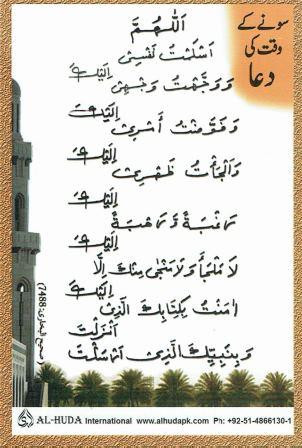 سونے کے
وقت کی
دعا
اَللّٰهُمَّ
اَسْلَمْتُ نَفْسِيْ
اِلَيْكَ
وَ وَجَّهْتُ وَجْهِيْ
اِلَيْكَ
وَ فَوَّضْتُ أَمْرِيْ
اِلَيْكَ
وَ اَلْجَأْتُ ظَهْرِيْ
اِلَيْكَ
رَغْبَةً وَّ رَهْبَةً
اِلَيْكَ
لَا مَلْجَأَ وَلَا مَنْجٰى مِنْكَ اِلَّا
اِلَيْكَ
اٰمَنْتُ بِكِتَابِكَ الَّذِيْ
اَنْزَلْتَ
وَ بِنَبِيِّكَ الَّذِيْ اَرْسَلْتَ
(صحیح البخاری: 7488)
AL-HUDA International www.alhudapk.com Ph: +92-51-4866130-1